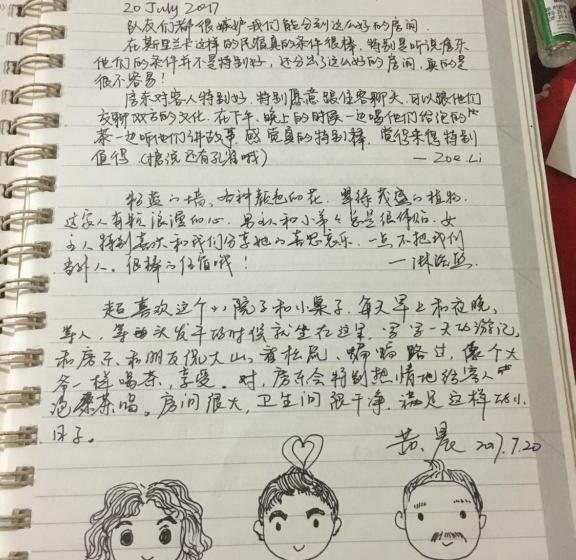 20 July 2017
队友们都很嫉妒我们能分到这么好的房间.
在斯里兰卡这样的民宿真的条件很棒,特别是听说房东
他们的条件并不是特别好,还分出了这么好的房间,真的是
很不容易!
房东对客人特别好,特别愿意跟住客聊天,可以跟他们
交聊双方的文化.在下午、晚上的时候一边喝他们给泡的
茶一边听他们讲故事,感觉真的特别棒,觉得来得特别
值得(据说还有孔雀哦) —Zoe Li
粉蓝的墙、各种颜色的花、翠绿茂盛的植物.
这家人有颗浪漫的心.男主人和小弟弟总是很体贴.女
主人特别喜欢和我们分享她的喜思哀乐,一点不把我们
当外人.很棒的住宿哦!
超喜欢这个小院子和小桌子,每天早上和夜晚,
等人,等西头发干的时候就坐在这里,写写一天的游记,
和房东、和朋友侃大山,看松鼠、蝙蝠路过,像个大
爷一样喝茶,享受.对,房东会特别热情地给客人
泡茶喝。房间很大,卫生间很干净,满足这样的小
日子。
黄晨 2017.7.20